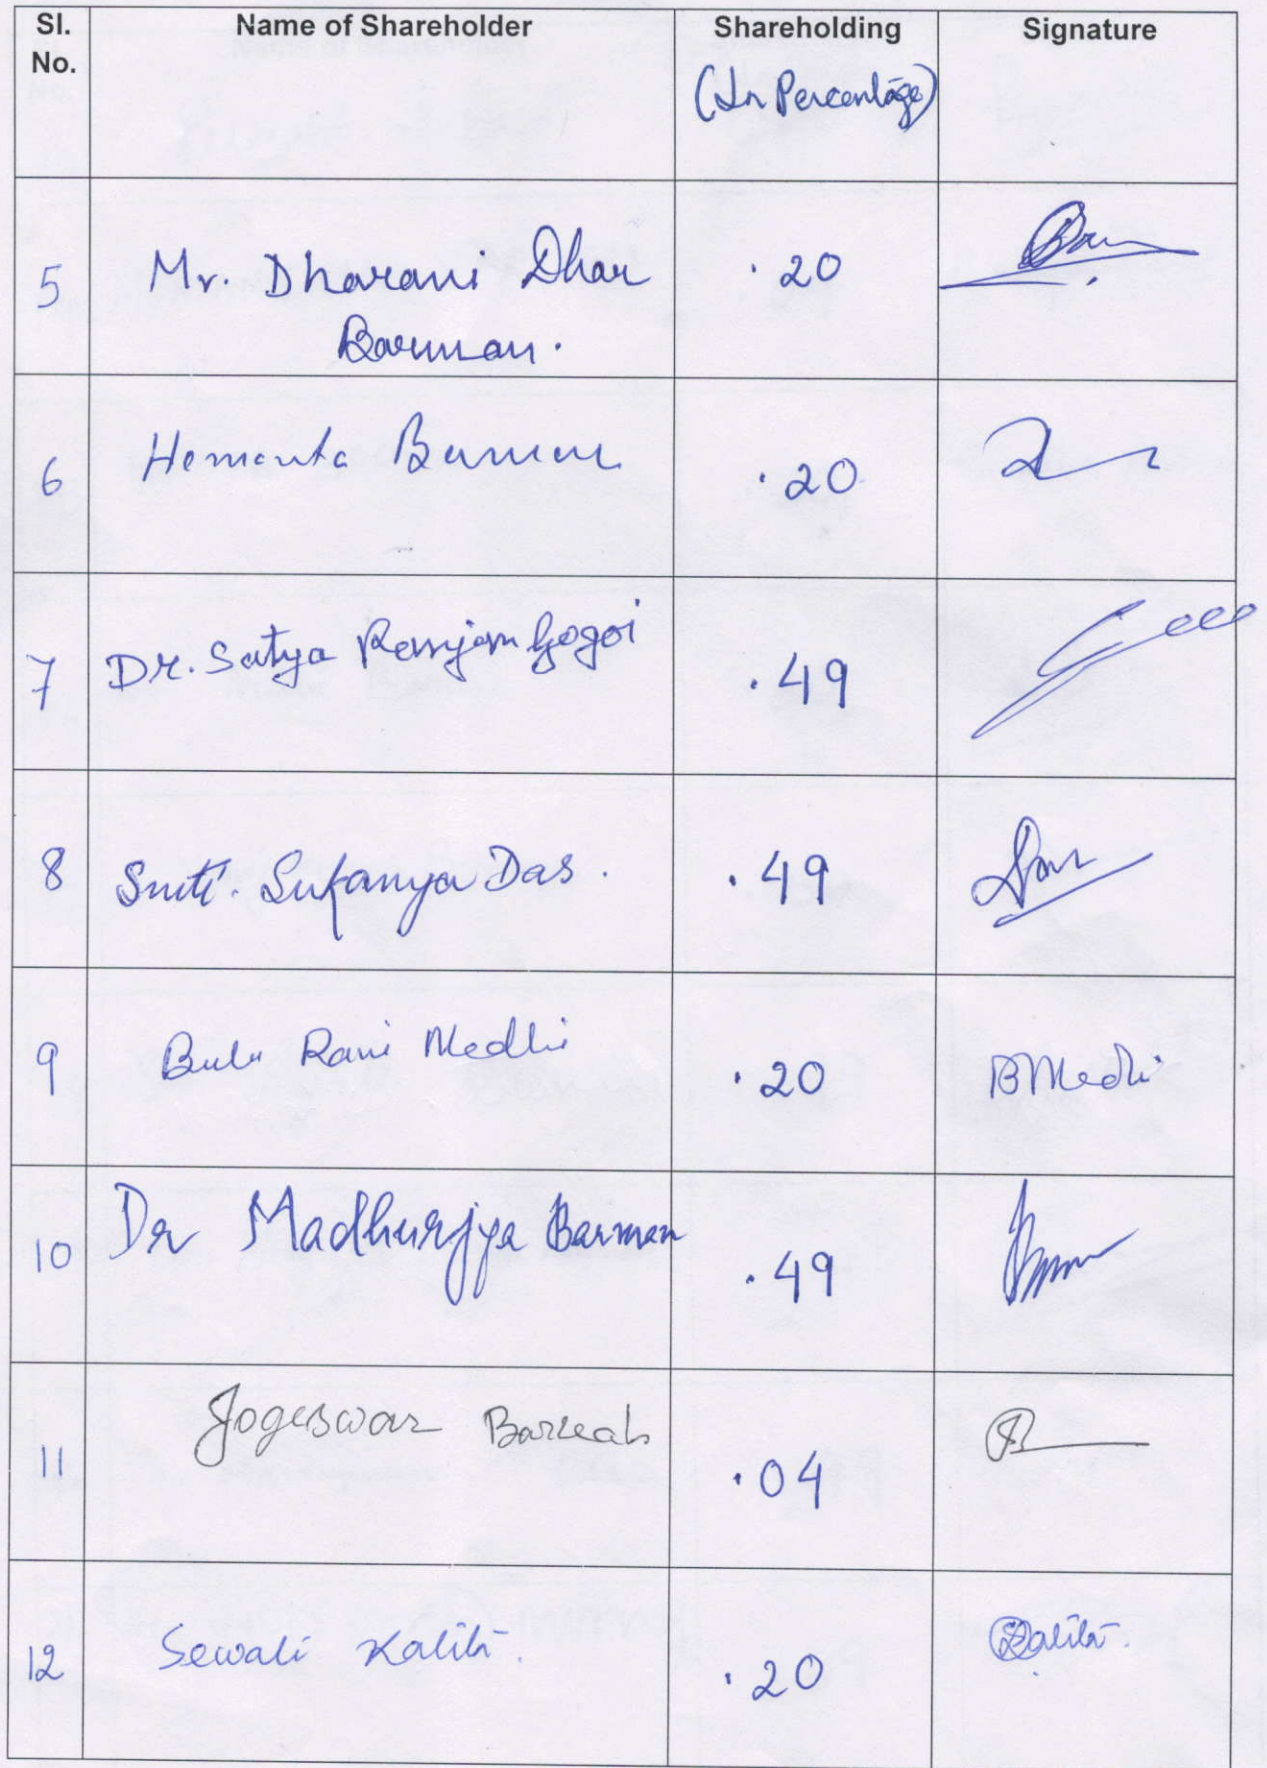 Sl. No. Name of Shareholder Shareholding (In Percentage) Signature
5 Mr. Dharani Dhar Barman. .20
6 Hemanta Barman .20
7 Dr. Satya Ranjan Gogoi .49
8 Smti. Sukanya Das. .49
9 Bulu Rani Medhi .20 BMedhi
10 Dr Madhurjya Barman .49
11 Jogeswar Baruah .04
12 Sewali Kalita. .20 Kalita.